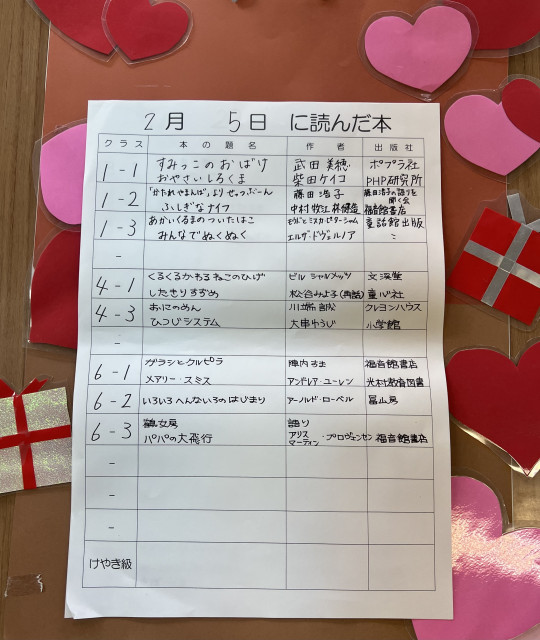 2月 5日 に読んだ本
クラス 本の題名 作者 出版社
1-1 すみっこのおばけ 武田美穂 ポプラ社
おやさいしろくま 柴田ケイコ PHP研究所
1-2 「かたれやまんば」より ぜっつぶーん 藤田浩子 藤田浩子の語りを聞く会
ふしぎなナイフ 中村牧江 林健造 福音館書店
1-3 あかいくるまのついたはこ モウドとミスカ・ピーターシャム 童話館出版
みんなでぬくぬく エルザ・ドヴェルノア 〃
-
4-1 くるくるかわるねこのひげ ビル・シャルメッツ 文溪堂
したきりすずめ 松谷みよ子(再話) 童心社
4-3 おにのめん 川端誠 クレヨンハウス
ひつじシステム 大串ゆうじ 小学館
-
6-1 ガラシとクルビラ 陣内すま 福音館書店
メアリー・スミス アンドレア・ユーレン 光村教育図書
6-2 いろいろへんないろのはじまり アーノルド・ローベル 冨山房
6-3 鶴女房 語り
パパの大飛行 アリス マーティン・プロヴェンセン 福音館書店
-
-
-
けやき級